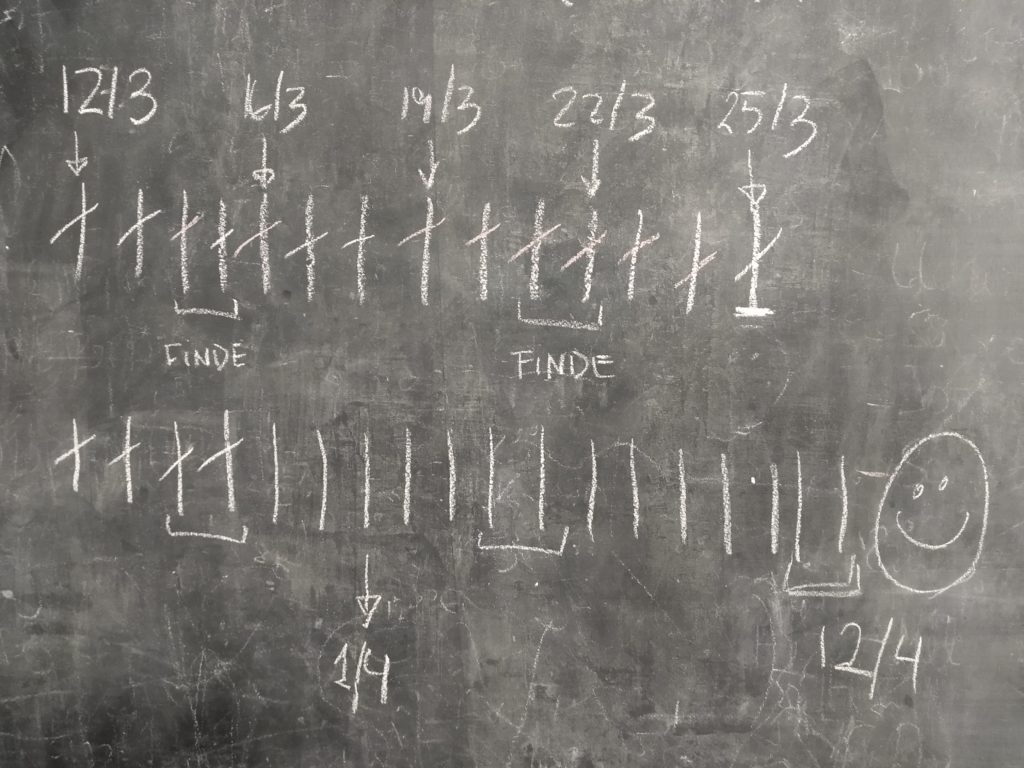 12/3 16/3 19/3 22/3 25/3
FINDE FINDE
1/4 12/4